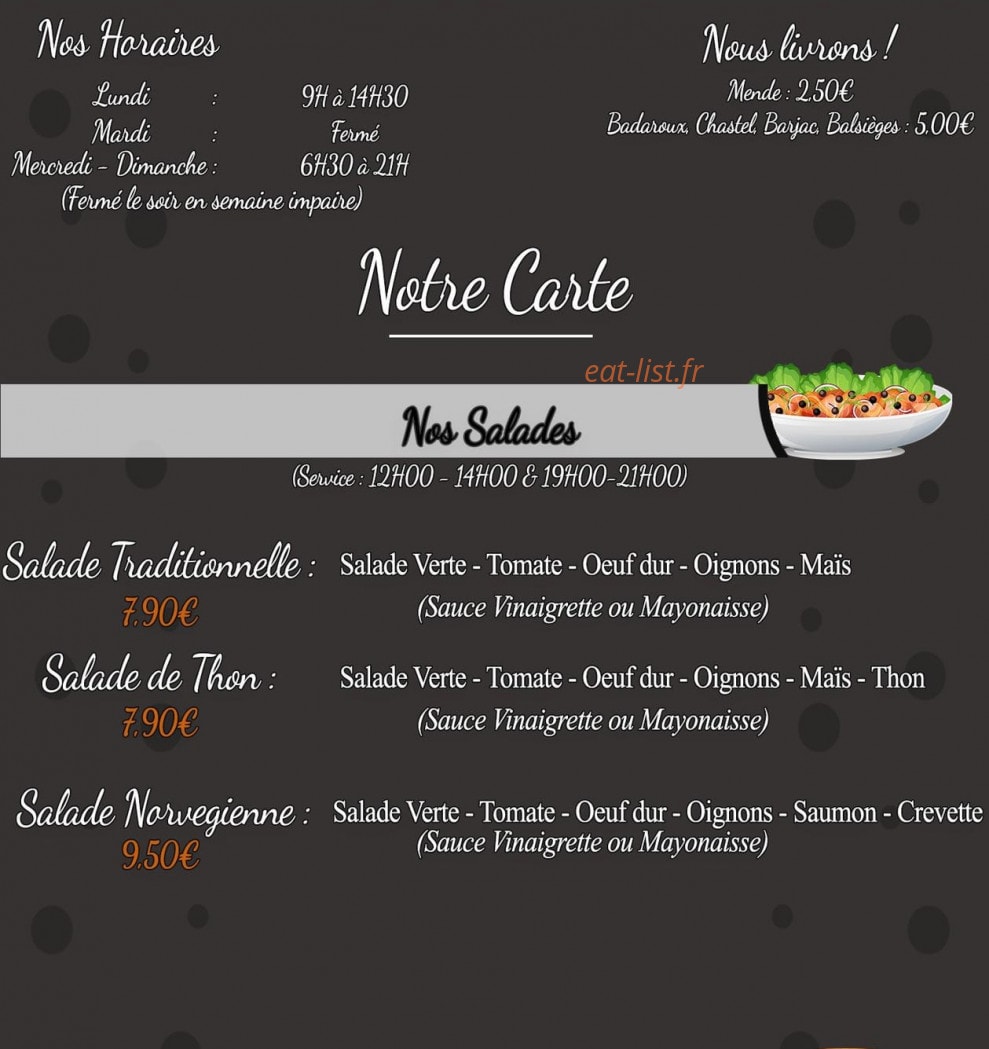 Nos Horaires
Lundi : 9H à 14H30
Mardi : Fermé
Mercredi - Dimanche : 6H30 à 21H
(Fermé le soir en semaine impaire)
Nous livrons !
Mende : 2,50€
Badaroux, Chastel, Barjac, Balsièges : 5,00€
Notre Carte
eat-list.fr
Nos Salades
(Service : 12H00 - 14H00 & 19H00-21H00)
Salade Traditionnelle : Salade Verte - Tomate - Oeuf dur - Oignons - Maïs
7.90€ (Sauce Vinaigrette ou Mayonaisse)
Salade de Thon : Salade Verte - Tomate - Oeuf dur - Oignons - Maïs - Thon
7.90€ (Sauce Vinaigrette ou Mayonaisse)
Salade Norvegienne : Salade Verte - Tomate - Oeuf dur - Oignons - Saumon - Crevette
9.50€ (Sauce Vinaigrette ou Mayonaisse)